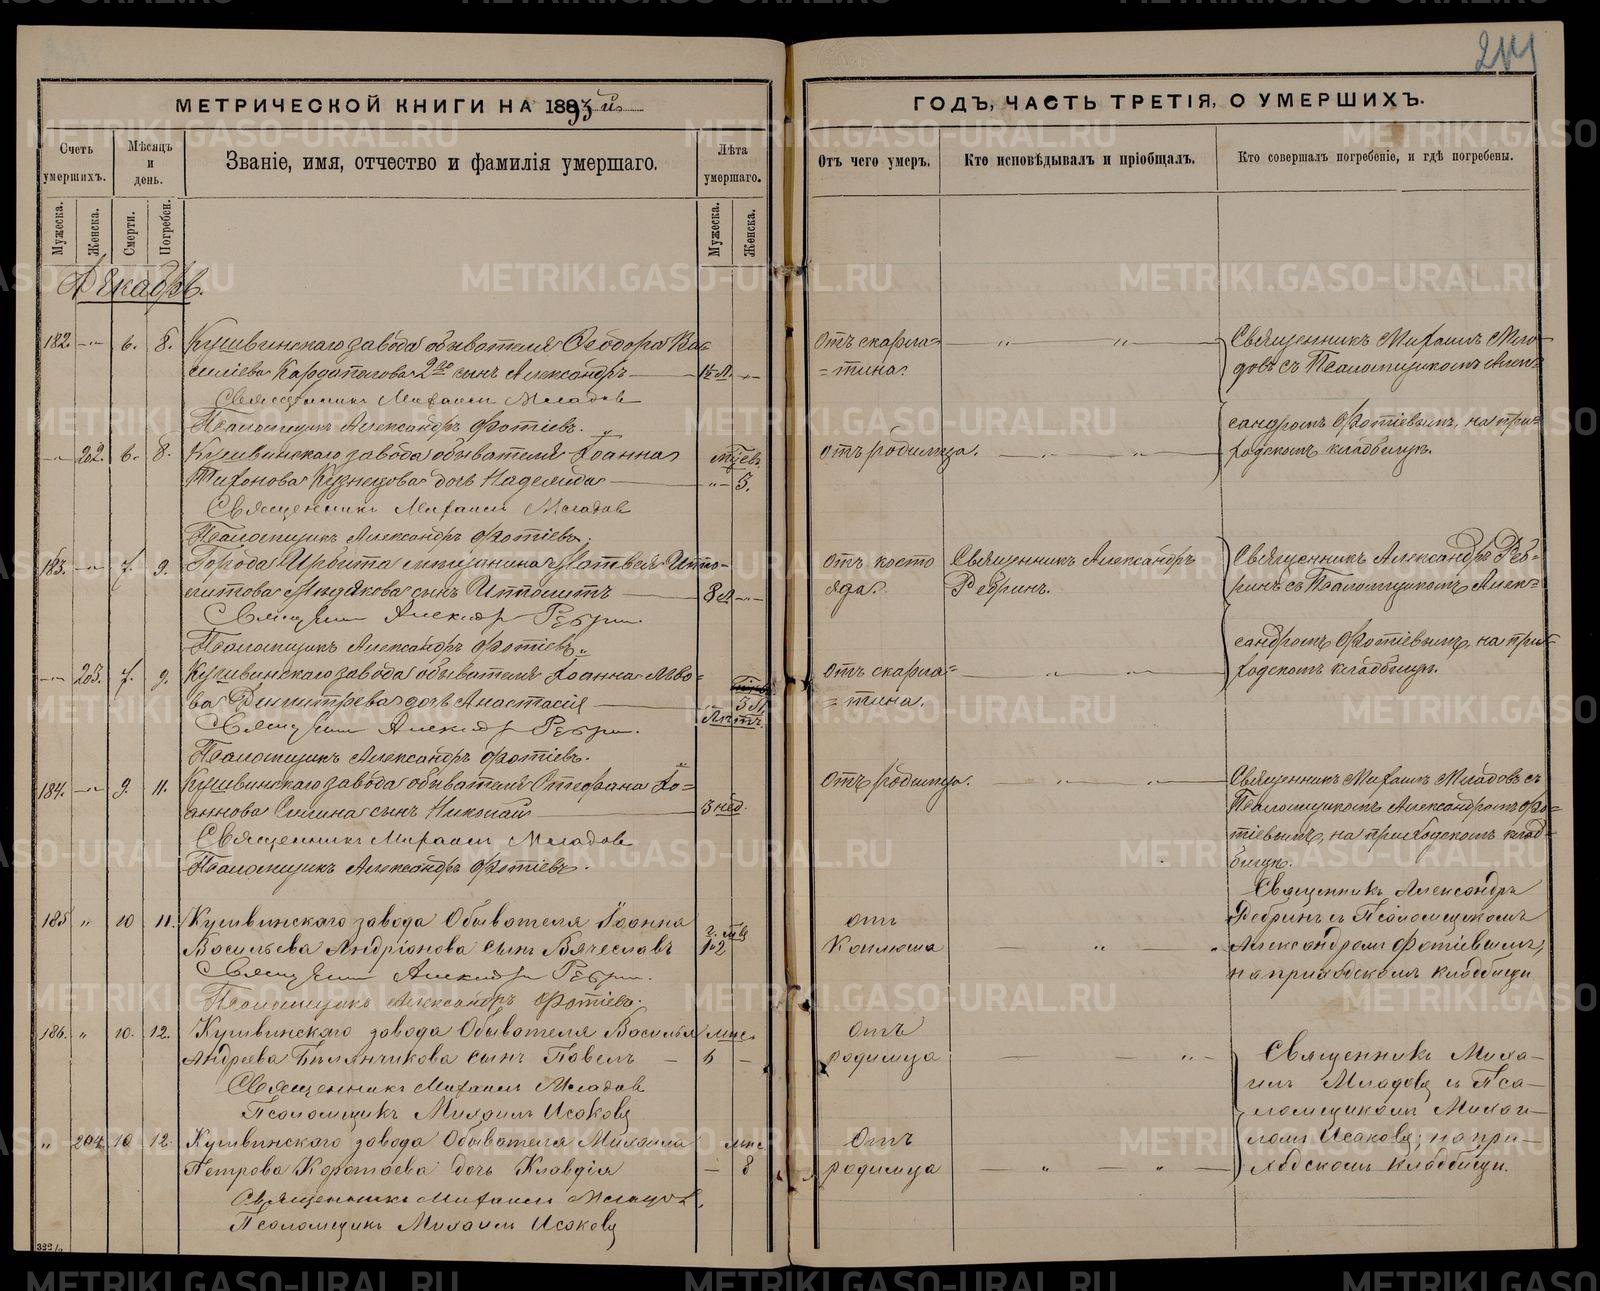 214
МЕТРИЧЕСКОЙ КНИГИ НА 1893й
ГОДЪ, ЧАСТЬ ТРЕТІЯ, О УМЕРШИХЪ.
Счетъ умершихъ.
Мѣсяцъ и день.
Званіе, имя, отчество и фамилія умершаго.
Лѣта умершаго.
Отъ чего умеръ.
Кто исповѣдывалъ и пріобщалъ.
Кто совершалъ погребеніе, и гдѣ погребены.
Мужеска.
Женска.
Смерти.
Погребен.
Мужеска.
Женска.
Декабрь.
182. 6. 8. Кушвинскаго завода обывателя Ѳеодора Ва=
сильева сынъ Александръ
Священникъ Михаилъ Младовъ
Псаломщикъ Александръ Фотіевъ.
отъ скарла=
=тина.
Священникъ Михаилъ Мла=
довъ съ Псаломщикомъ Алек=
сандромъ Фотіевымъ, на при=
ходскомъ кладбищѣ.
202. 6. 8. Кушвинскаго завода обывателя Іоанна
Тихонова Кузнецова дочь Надежда 5.
Священникъ Михаилъ Младовъ
Псаломщикъ Александръ Фотіевъ.
отъ родимца.
183. 7. 9. Города Ирбита мѣщанина Матвея Иппо=
литова сынъ Ипполитъ 8 л.
Священникъ Александр Ребрин
Псаломщикъ Александръ Фотіевъ.
отъ косто
яда.
Священникъ Александръ
Ребринъ.
Священникъ Александръ Реб=
ринъ съ Псаломщикомъ Алек=
сандромъ Фотіевымъ, на при=
ходскомъ кладбищѣ.
203. 7. 9. Кушвинскаго завода обывателя Іоанна Льво=
ва Димитрева дочь Анастасія 5 л.
Лѣтъ
Священник Александр Ребрин.
Псаломщикъ Александръ Фотіевъ.
отъ скарла=
=тина.
184. 9. 11. Кушвинскаго завода обывателя Стефана Іо=
аннова сынъ Николай 3 нед.
Священникъ Михаилъ Младовъ
Псаломщикъ Александръ Фотіевъ.
отъ родимца.
Священникъ Михаилъ Младовъ съ
Псаломщикомъ Александромъ Фо=
тіевымъ, на приходскомъ клад=
бищѣ.
185 " 10 11. Кушвинскаго завода Обывателя Іоанна
Васильева Андріонова сынъ Вячеславъ
Священник Александр Ребрин.
Псаломщикъ Александръ Фотіевъ.
отъ
Коклюша
Священникъ Александръ
Ребринъ съ Псаломщикомъ
Александромъ Фотіевымъ,
на приходскомъ кладбищѣ
186. " 10. 12. Кушвинскаго завода Обывателя Василья мѣс.
Андреева сынъ Павелъ 6
Священникъ Михаилъ Младовъ
Псаломщикъ Михаилъ Исаковъ
Отъ
родимца
Священникъ Миха-
илъ Младовъ съ Пса-
ломщикомъ Михаи-
ломъ Исаковъ, на при-
ходскомъ кладбищѣ.
" 204. 10 12. Кушвинскаго завода Обывателя Михаила мѣс
Петрова Коротаева дочь Клавдія 8
Священникъ Михаилъ Младовъ.
Псаломщикъ Михаилъ Исаковъ
Отъ
родимца
METRIKI.GASO-URAL.RU